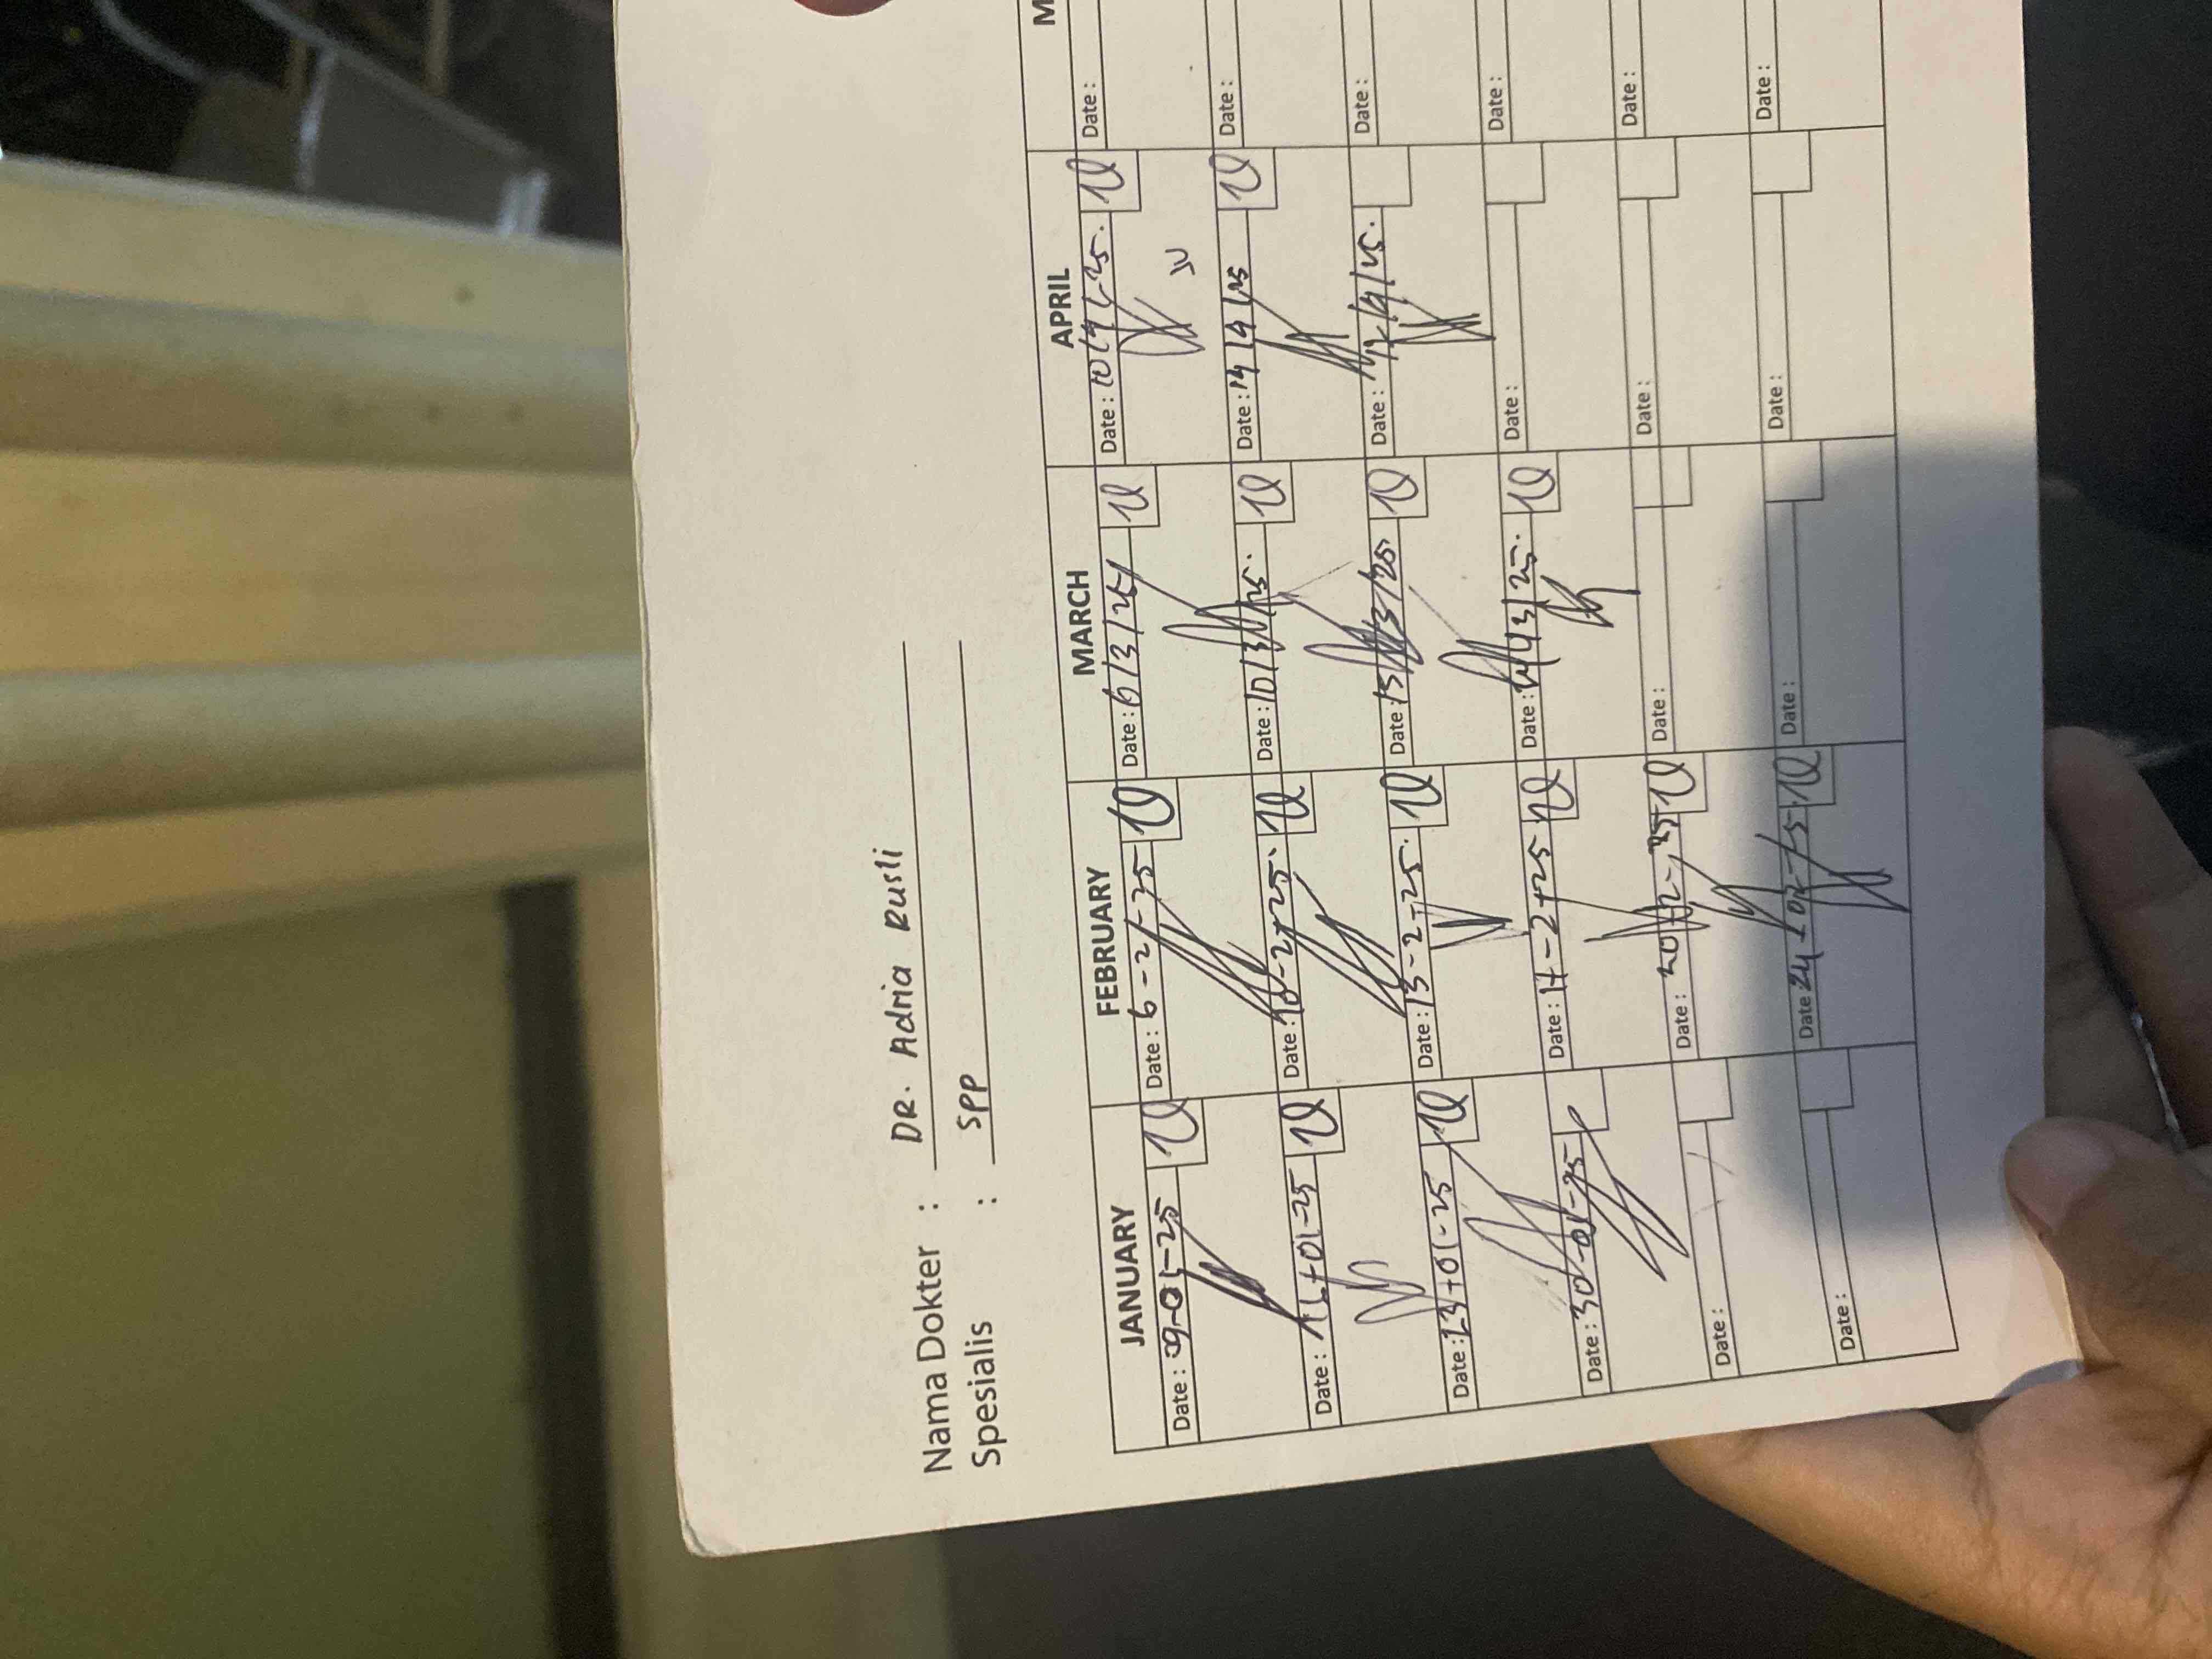 Nama Dokter : DR. Adria Rusli
Spesialis : SPP
JANUARY FEBRUARY MARCH APRIL M
Date : 09-01-25 Date : 6-2-25 Date : 6/3/25 Date : 10/4/25. Date :
Date : -01-25 Date : 10-2-25. Date : 10/3/25. Date : 14/4/25 Date :
Date : 23-01-25 Date : 13-2-25. Date : 13/3/25 Date : /4/25. Date :
Date : 30-01-25 Date : 17-2-25 Date : /3/25. Date : Date :
Date : Date : 20-2-25 Date : Date : Date :
Date : Date : 24-02-25 Date : Date : Date :